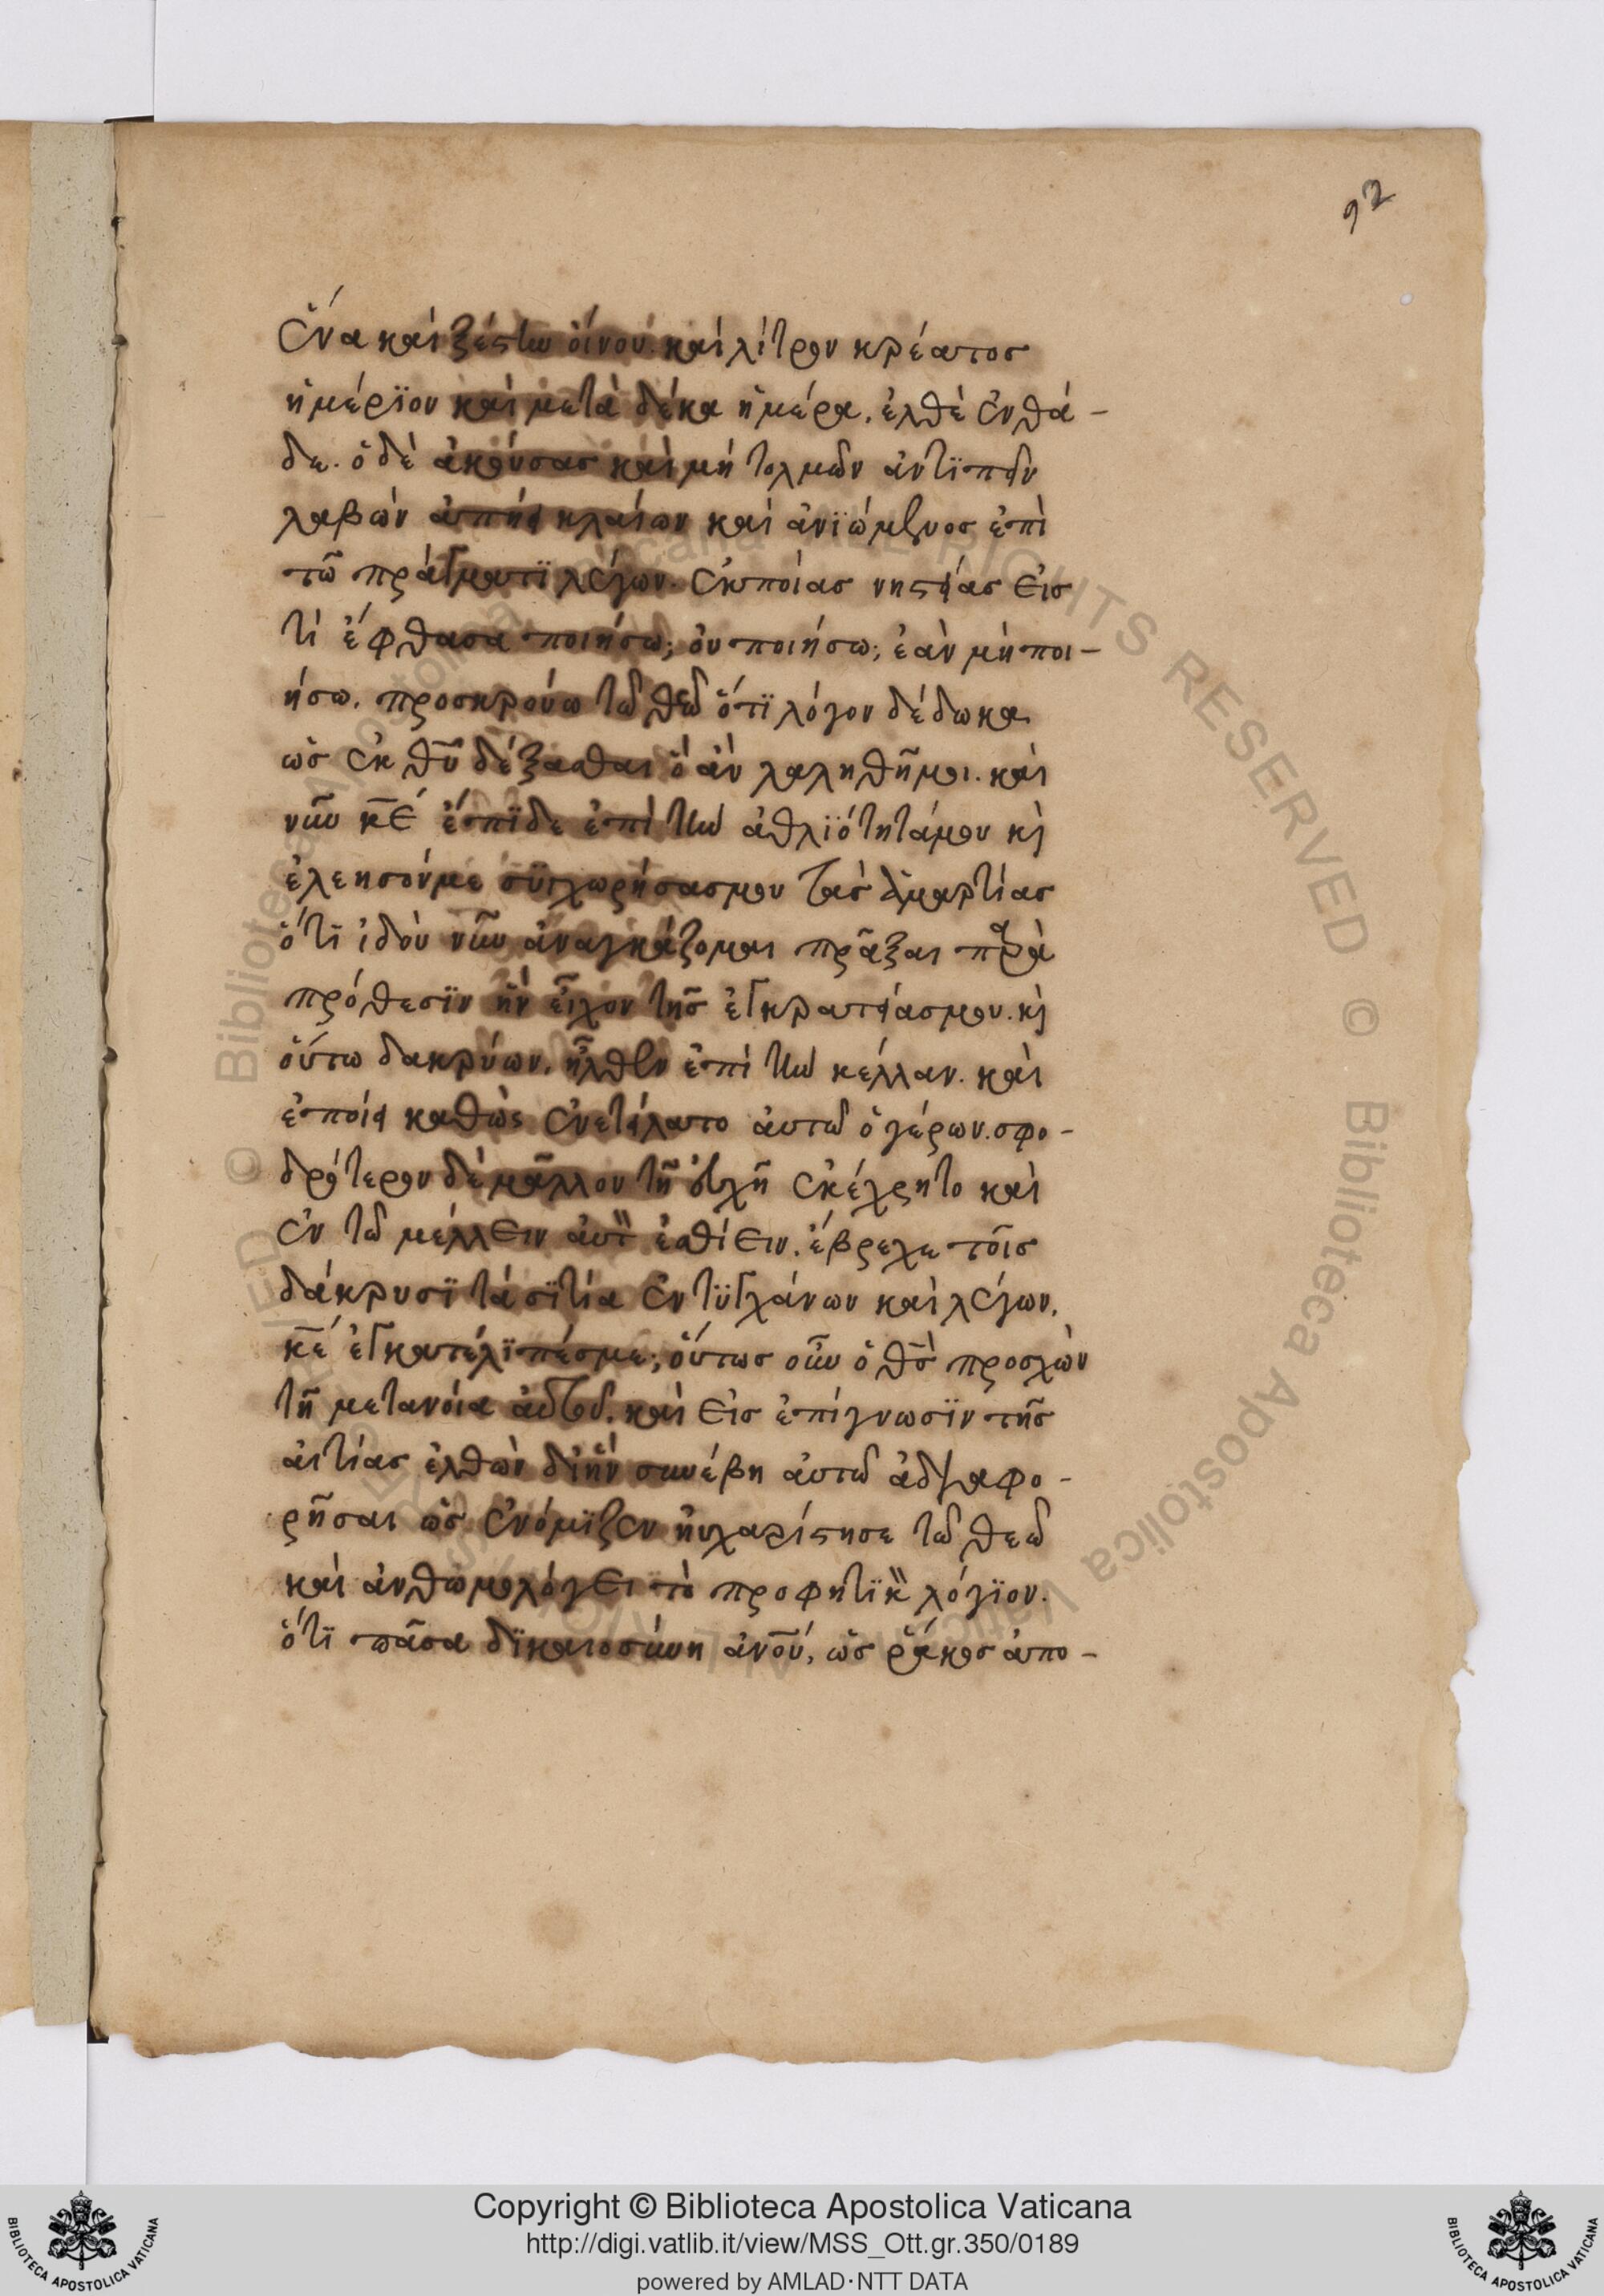 92
ἕνα καὶ ξέστην οἴνου. καὶ λίτραν κρέατος
ἡμέριον καὶ μετὰ δέκα ἡμέρα, ἐλθὲ ἐνθά-
δε. ὁ δὲ ἀκούσας καὶ μὴ τολμῶν ἀντιπεῖν
λαβὼν ἀπήει κλαίων καὶ ἀνιώμενος ἐπὶ
τῶ πράγματι λέγων. ἐκ ποίας νηστείας εἰς
τί ἔφθασα ποιήσω; οὐ ποιήσω; ἐὰν μὴ ποι-
ήσω. προσκρούω τῶ θεῶ ὅτι λόγον δέδωκα
ὡς ἐκ θῦ δέξασθαι ὃ ἂν λαληθῆ μοι. καὶ
νῦν κε ἔπιδε ἐπὶ τὴν ἀθλιότητά μου κὶ
ἐλεησόν με συγχωρήσας μου τὰς ἁμαρτίας
ὅτι ἰδοὺ νῦν ἀναγκάζομαι πρᾶξαι παρὰ
πρόθεσιν ἣν εἶχον τῆς ἐγκρατείας μου. κὶ
οὕτω δακρύων, ἦλθεν ἐπὶ τὴν κέλλαν. καὶ
ἐποίει καθὼς ἐνετείλατο αὐτῶ ὁ γέρων. σφο-
δρότερον δὲ μᾶλλον τῆ εὐχῆ ἐκέχρητο καὶ
ἐν τῶ μέλλειν αὐτὸν ἐσθίειν, ἔβρεχε τοῖς
δάκρυσι τὰ σιτία ἐντυγχάνων καὶ λέγων,
κε ἐγκατέλιπές με; οὕτως οὖν ὁ θς προσχὼν
τῆ μετανοία αὐτοῦ, καὶ εἰς ἐπίγνωσιν τῆς
αἰτίας ἐλθὼν δι ἣν συνέβη αὐτῶ ἀδιαφο-
ρῆσαι ὡς ἐνόμιζεν ηὐχαρίστησε τῶ θεῶ
καὶ ἀνθωμολόγει τὸ προφητικὸν λόγιον.
ὅτι πᾶσα δικαιοσύνη ἀνοῦ, ὡς ῥάκος ἀπο-
Copyright © Biblioteca Apostolica Vaticana
http://digi.vatlib.it/view/MSS_Ott.gr.350/0189
powered by AMLAD·NTT DATA
BIBLIOTECA APOSTOLICA VATICANA
BIBLIOTECA APOSTOLICA VATICANA